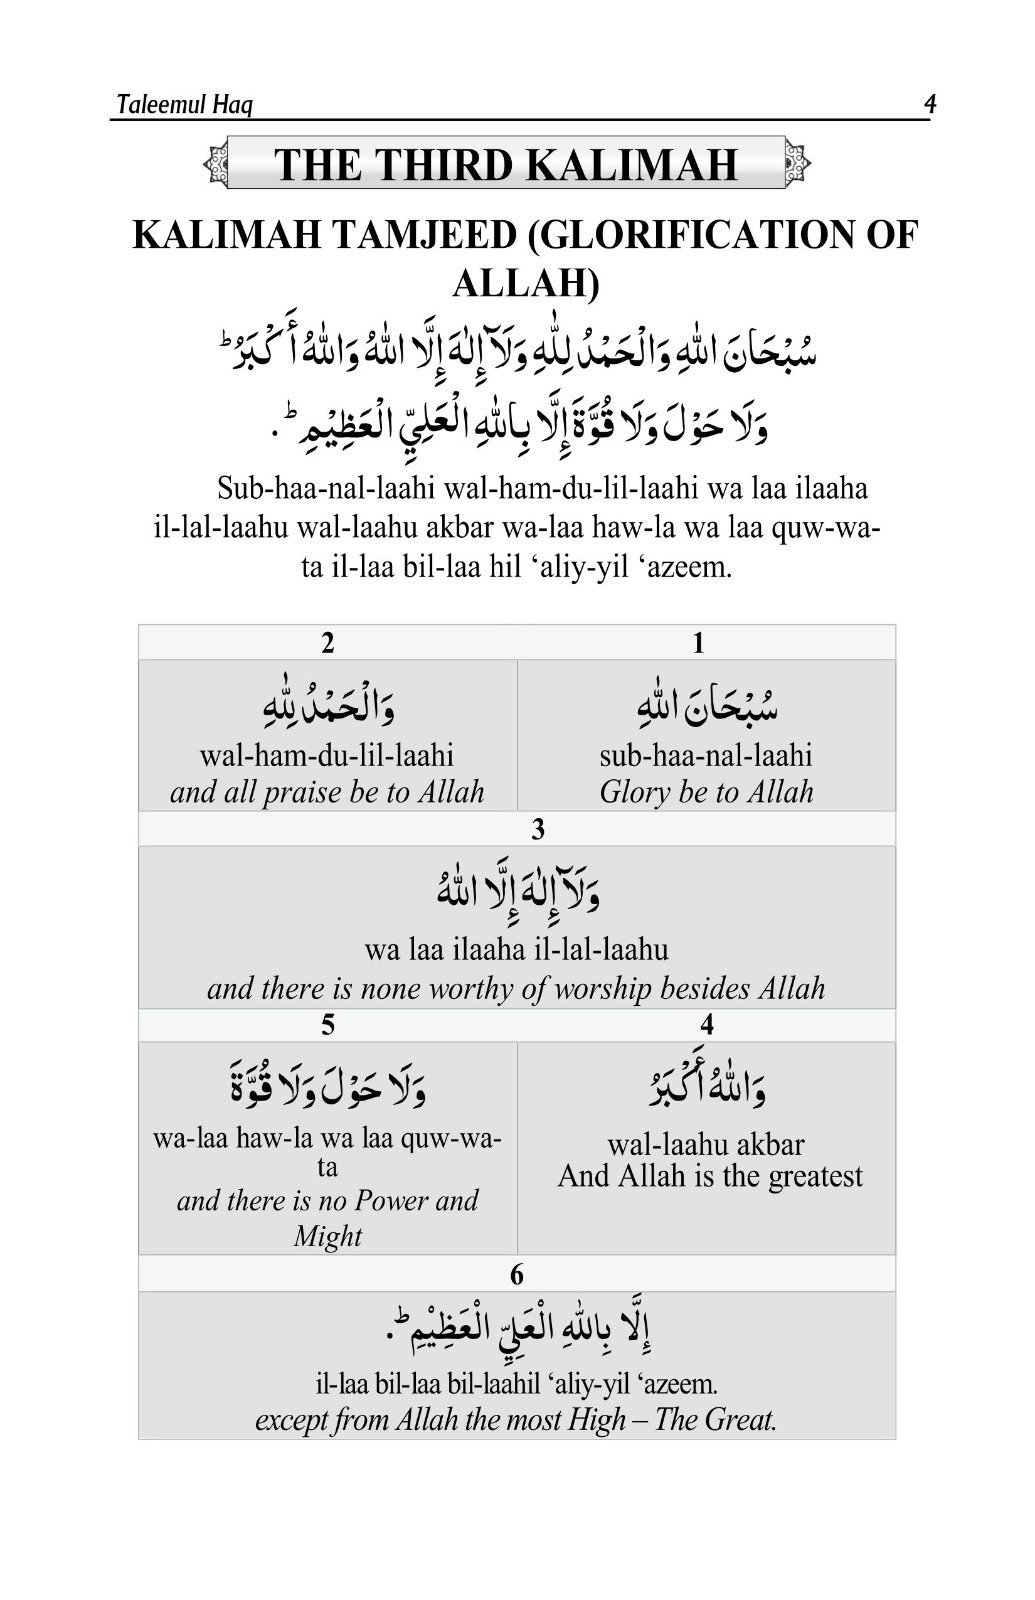 Taleemul Haq 4
THE THIRD KALIMAH
KALIMAH TAMJEED (GLORIFICATION OF
ALLAH)
سُبْحَانَ اللهِ وَالْحَمْدُ لِلّٰهِ وَلَآ إِلٰهَ إِلَّا اللهُ وَاللهُ أَكْبَرُ ؕ
وَلَا حَوْلَ وَلَا قُوَّةَ إِلَّا بِاللهِ الْعَلِيِّ الْعَظِيْمِ ؕ.
Sub-haa-nal-laahi wal-ham-du-lil-laahi wa laa ilaaha
il-lal-laahu wal-laahu akbar wa-laa haw-la wa laa quw-wa-
ta il-laa bil-laa hil ‘aliy-yil ‘azeem.
1
سُبْحَانَ اللهِ
sub-haa-nal-laahi
Glory be to Allah
2
وَالْحَمْدُ لِلّٰهِ
wal-ham-du-lil-laahi
and all praise be to Allah
3
وَلَآ إِلٰهَ إِلَّا اللهُ
wa laa ilaaha il-lal-laahu
and there is none worthy of worship besides Allah
4
وَاللهُ أَكْبَرُ
wal-laahu akbar
And Allah is the greatest
5
وَلَا حَوْلَ وَلَا قُوَّةَ
wa-laa haw-la wa laa quw-wa-
ta
and there is no Power and
Might
6
إِلَّا بِاللهِ الْعَلِيِّ الْعَظِيْمِ ؕ.
il-laa bil-laa bil-laahil ‘aliy-yil ‘azeem.
except from Allah the most High – The Great.